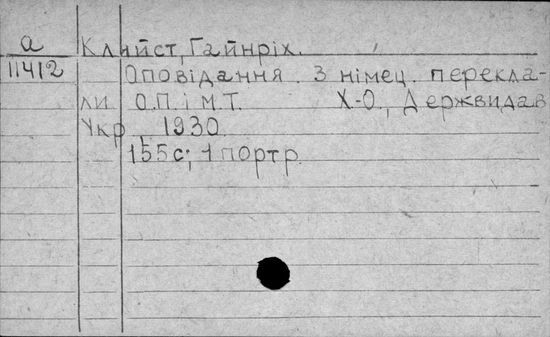 а Клийст, Гайнріх.
11412 Оповідання. З німец. перекла-
ли О.П. і М.Т. Х-О., Держвидав
Укр., 1930.
155с; 1 портр.